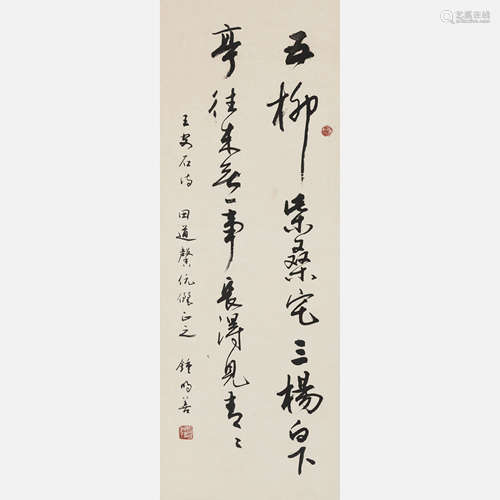 五柳柴桑宅三楊白下
亭往来無一事長得見青〻
王安石诗 田道馨伉儷正之 鍾明善